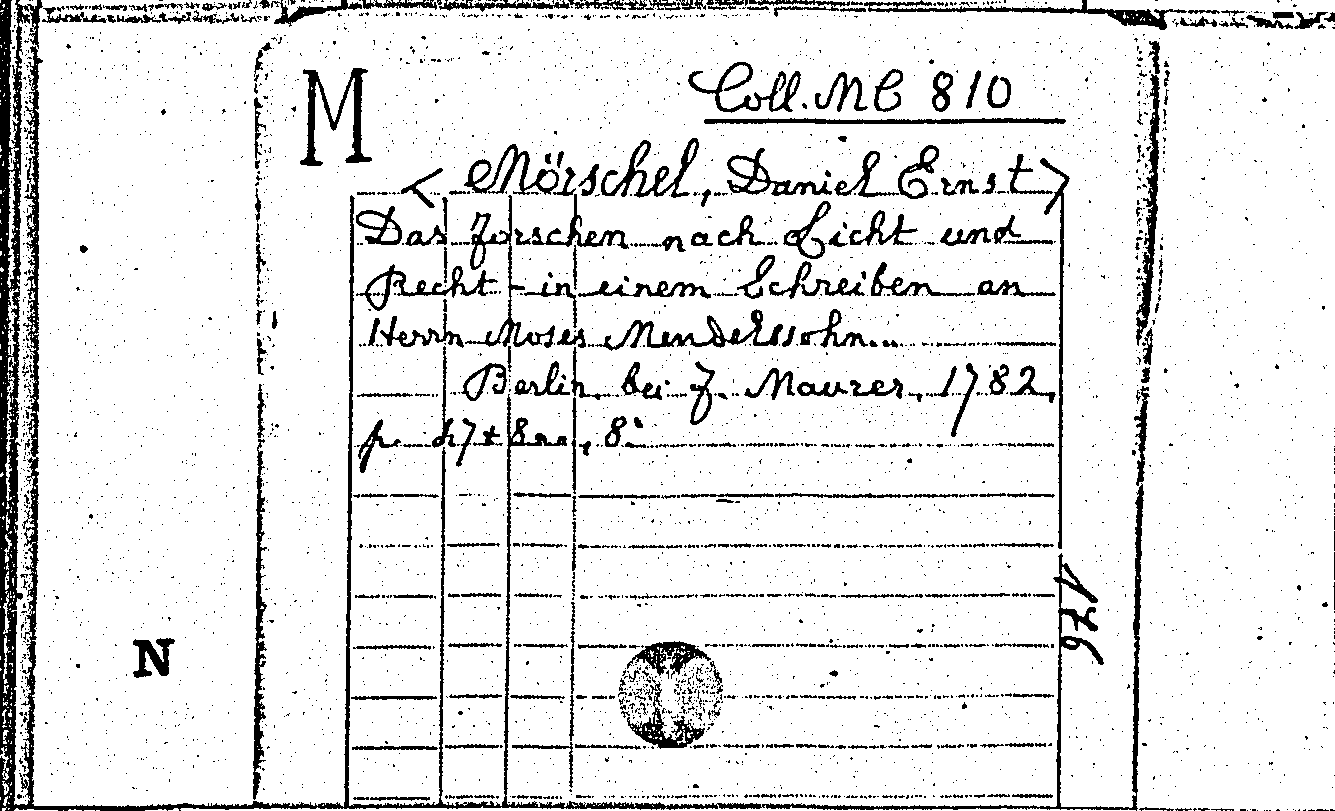 M
Coll. MC 810
< Mörschel, Daniel Ernst >
Das Forschen nach Licht und
Recht - in einem Schreiben an
Herrn Moses Mendelssohn...
Berlin, bei F. Maurer, 1782,
p. 47 + 8nn., 8°
176
N